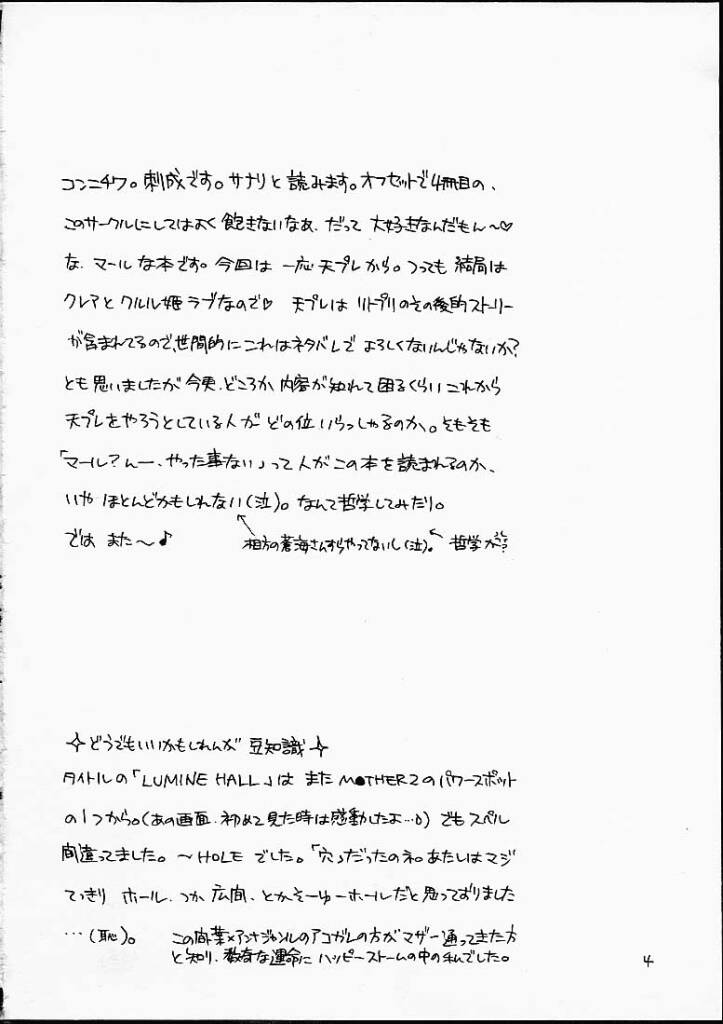 コンニチワ。刺成です。サナリと読みます。オフセットで4冊目の、
このサークルにしてはよく飽きないなあ、だって大好きなんだもん〜♡
な、マールな本です。今回は一応天プレから。つっても結局は
クレアとクルル姫ラブなので♡ 天プレはリトプリのその後的ストーリー
が含まれてるので、世間的にこれはネタバレでよろしくないんじゃないか?
とも思いましたが今更、どころか内容が知れて困るくらいこれから
天プレをやろうとしている人がどの位いらっしゃるのか。そもそも
「マール?んー、やった事ない」って人がこの本を読まれるのか、
いやほとんどかもしれない(泣)。なんて哲学してみたり。
では また〜♪
相方の蒼海さんすらやってないし(泣)。
哲学か?
✧どうでもいいかもしれんが 豆知識✧
タイトルの「LUMINE HALL」は またMOTHER2のパワースポット
の1つから。(あの画面、初めて見た時は感動したよ…) でもスペル
間違ってました。〜HOLEでした。「穴」だったのネ。あたしはマジ
てっきり ホール、つか広間、とかそーゆーホールだと思っておりました
…(恥)。
アンナジャンルのアコガレの方がマザー通ってきた方
と知り、数奇な運命にハッピーストームの中の私でした。
4